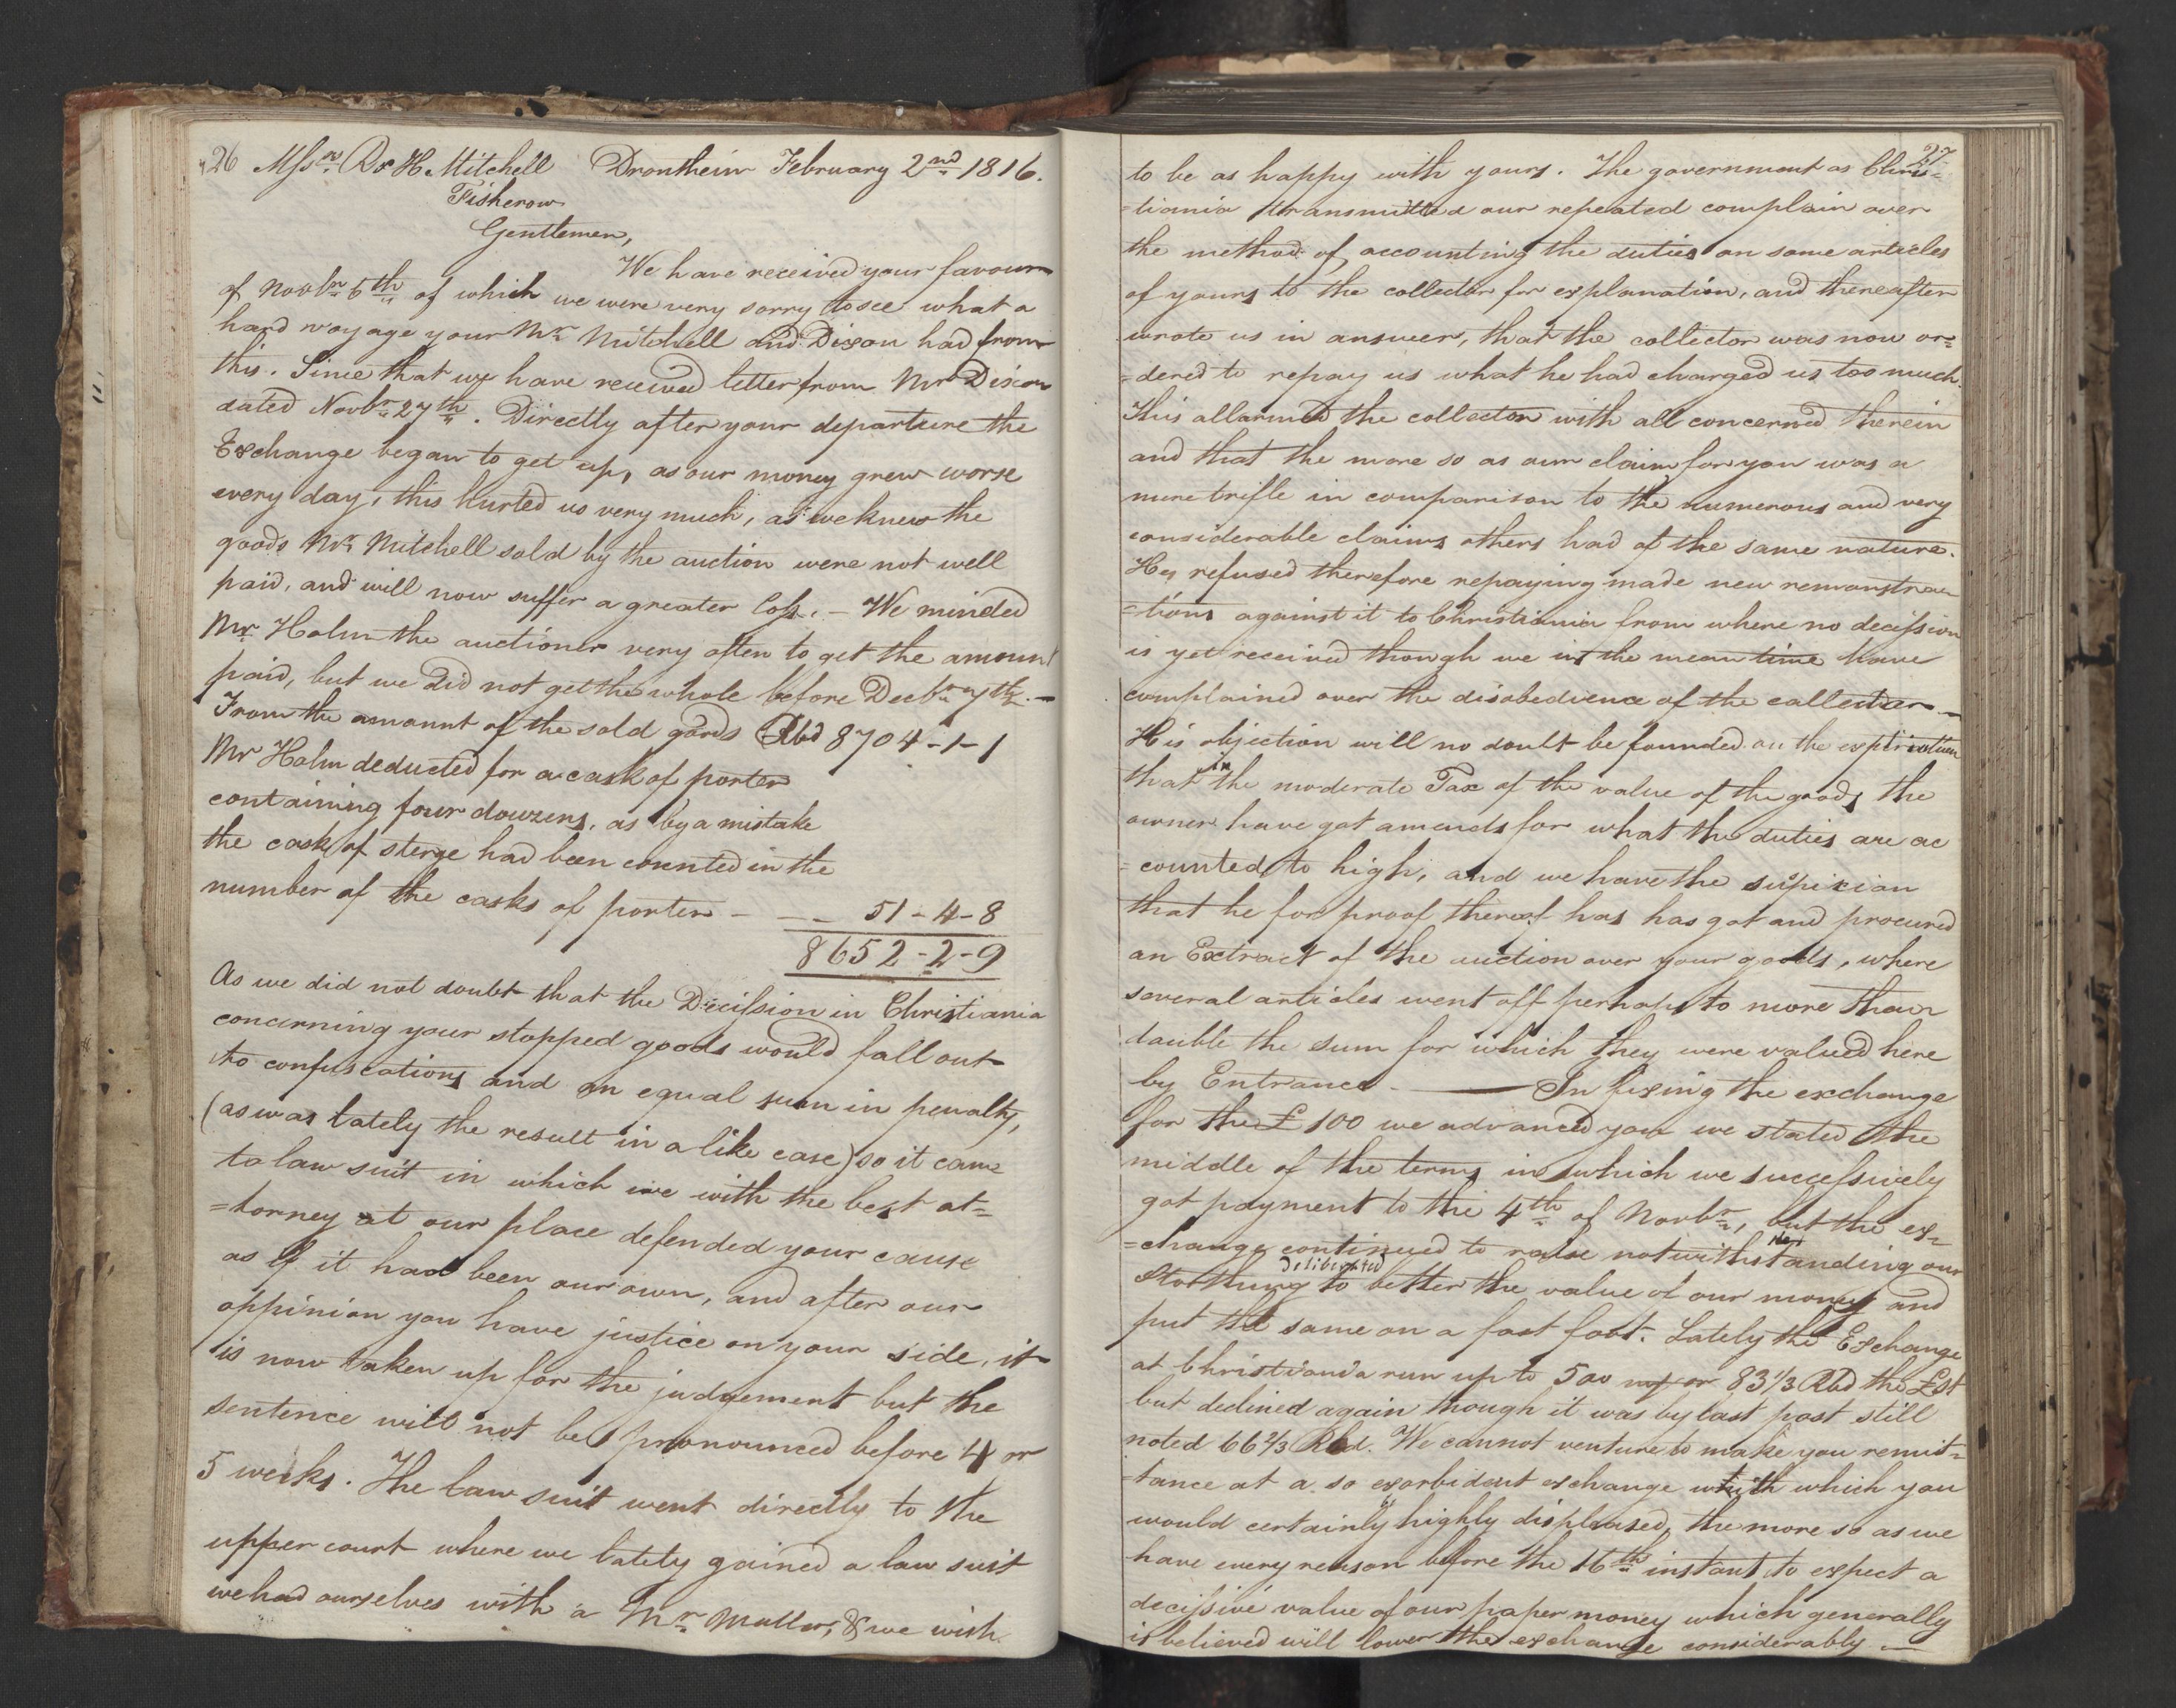 26 Mssrs. R & H. Mitchell Drontheim February 2nd 1816.
Fisherow
Gentlemen,
We have received your favour
of Novbr 5th of which we were very sorry to see what a
hard voyage your Mr Mitchell and Dixon had from
this. Since that we have received letter from Mr Dixon
dated Novbr 27th. Directly after your departure the
Exchange began to get up, as our money grew worse
every day, this hurted us very much, as we knew the
goods Mr Mitchell sold by the auction were not well
paid, and will now suffer a greater loss. – We minded
Mr Holm the auctioner very often to get the amount
paid, but we did not get the whole before Decbr 7th. –
From the amount of the sold goods Rbd 8704-1-1
Mr Holm deducted for a cask of porter
containing four douzens, as by a mistake
the cask of had been counted in the
number of the casks of porter - - - 51-4-8
8652-2-9
As we did not doubt that the Decission in Christiania
concerning your stopped goods would fall out
to confiscations and an equal sum in penalty,
(as was lately the result in a like case) so it came
to law suit in which we with the best at=
=torney at our place defended your cause
as if it had been our own, and after our
oppinion you have justice on your side, it
is now taken up for the judgement but the
sentence will not be pronounced before 4 or
5 weeks. The law suit went directly to the
upper court where we lately gained a law suit
we had ourselves with a Mr Muller, & we wish
27
to be as happy with yours. The government as Chris=
=tiania transmitted our repeated complain over
the method of accounting the duties on some articles
of yours to the collector for explanation, and thereafter
wrote us in answer, that the collector was now or=
=dered to repay us what he had charged us too much.
This allarmed the collector with all concerned therein
and that the more so as our claim for you was a
mere trifle in comparison to the numerous and very
considerable claims others had of the same nature.
He refused therefore repaying made new remonstra
=tions against it to Christiania from where no decission
is yet received though we in the mean time have
complained over the disobedience of the collector. –
His objection will no doubt be founded on the
that in the moderate Tax of the value of the goods the
owner have got amends for what the duties are ac
=counted to high, and we have the supicion
that he for proof thereof has has got and procured
an Extract of the auction over your goods, where
several articles went off perhaps to more than
double the sum for which they were valued here
by Entrance. — In fixing the exchange
for the £ 100 we advanced you we stated the
middle of the terms in which we successively
got payment to the 4th of Novbr, but the ex=
=change continued to raise notwithstanding our
Storthing deliberated to better the value of our money and
put the same on a fast foot. Lately the Exchange
at Christiania run up to 500 or 83 1/3 Rbd the £ St
but declined again though it was by last post still
noted 66 2/3 Rbd. We cannot venture to make you remit=
=tance at a so exorbident exchange with which you
would certainly highly displeased, the more so as we
have every reason before the 16th instant to expect a
decissive value of our paper money which generally
is believed will lower the exchange considerably. –